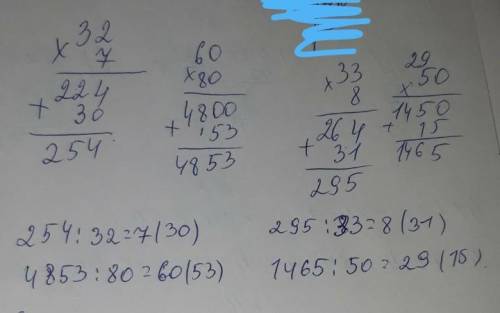 ×32
7
224
+30
254
60
×80
4800
+153
4853
×33
8
264
+31
295
29
×50
1450
+15
1465
254:32=7(30)
4853:80=60(53)
295:33=8(31)
1465:50=29(15)